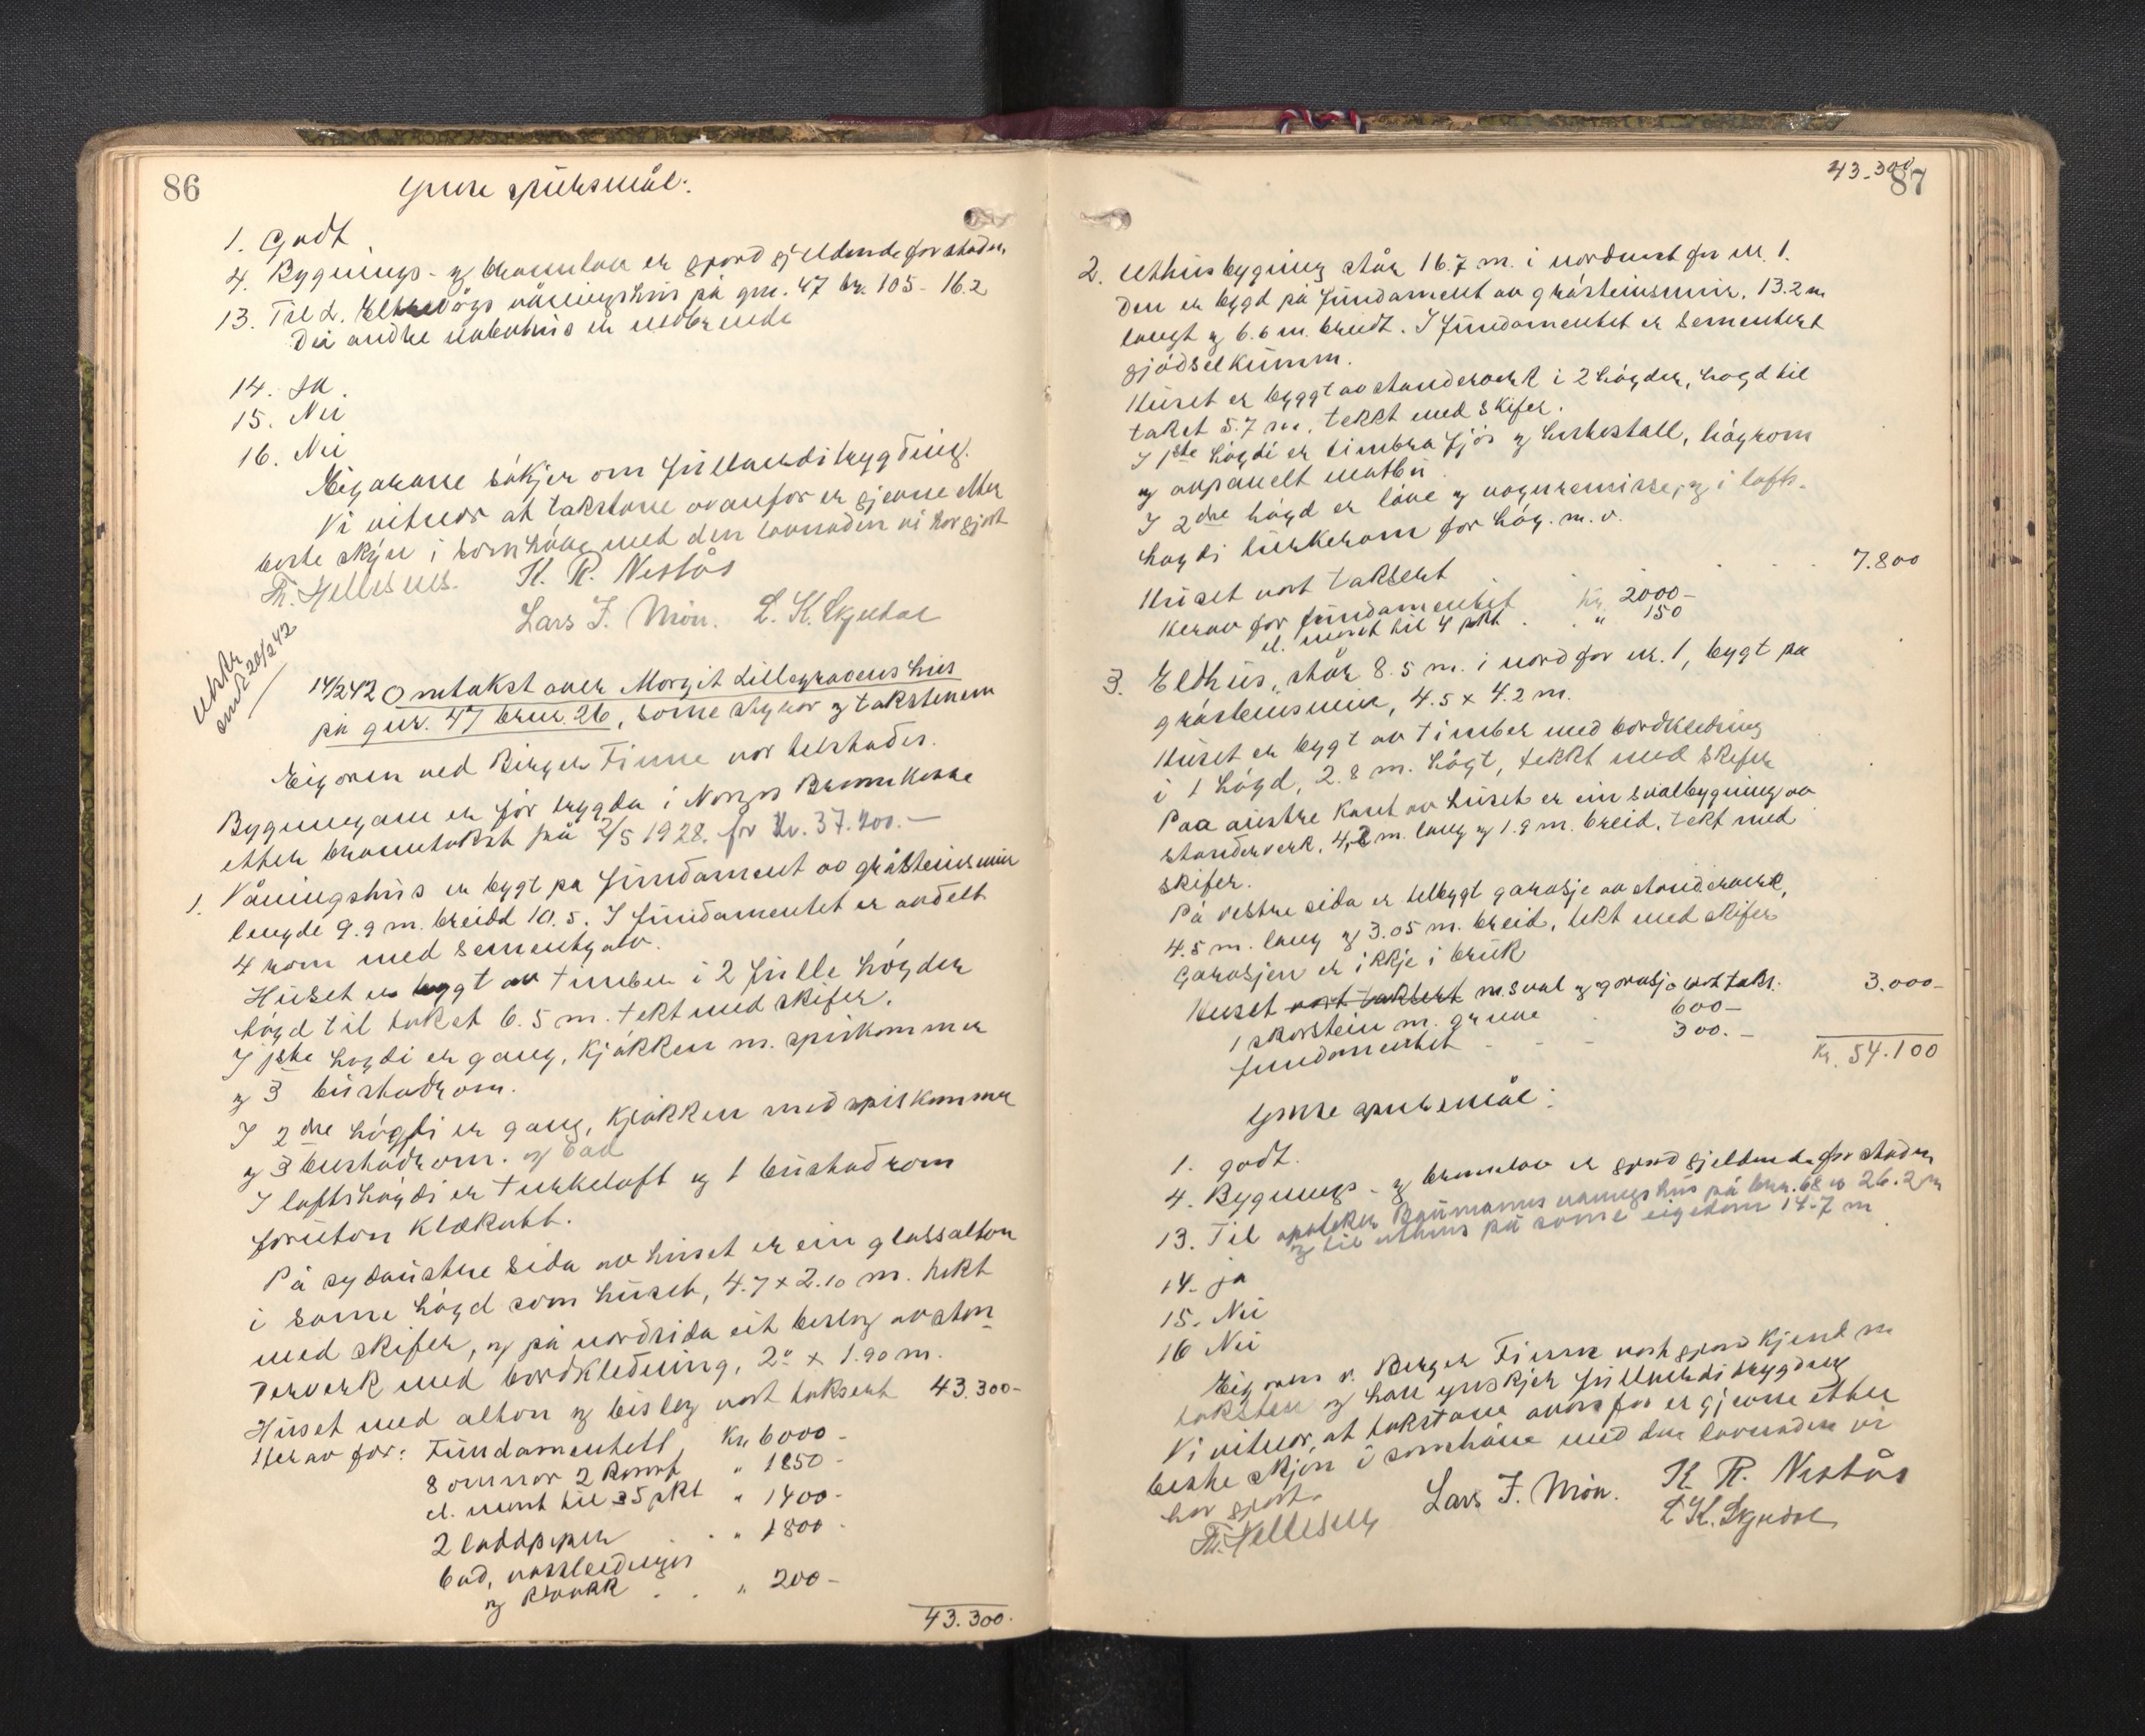 86
Ymse spursmål:
1. Godt
4. Bygnings- og brannlov er gjord gjeldande for staden
13. Til L. våningshus på gnr. 47 br. 105 - 16.2
Dei andre nabohus er uvedkomande
14. Ja.
15. Nei
16. Nei
Eigarane søkjer om fullverditrygding.
Vi vitnar at takstane ovanfor er gjevne etter
beste skjøn i samhøve med den lovnaden vi har gjort
Th. Hellesnes. K. R. Nestås
Lars J. Møn. L. K. Skjeldal
Utskr.
send 20/2 42
14/2 42 Omtakst over Margit Lillegravens hus
på gnr. 47 brnr. 26, some skjøn og takstmenn
Eigaren ved Birger Finne var tilstades.
Bygningane er før trygda i Norges Brannkasse
etter branntakst på 2/5 1928. for kr. 37.400.-
1. Våningshus er bygt på fundament av gråsteinsmur
lengde 9.9 m. breidd 10.5. I fundamentet er avdelt
4 rom med sementgolv.
Huset er bygt av timber i 2 fulle høgder
høgd til taket 6.5 m. tekt med skifer.
I 1ste høgdi er gang, kjøkken m. spiskammer
og 3 bustadrom.
I 2dre høgdi er gang, kjøkken med spiskammer
og 3 bustadrom. og bad
I loftshøgdi er turkeloft og 1 bustadrom
foruten klækott.
På sydaustre sida av huset er ein glassaltan
i same høgd som huset, 4.7 x 2.10 m. tekt
med skifer, og på nordsida eit bislag av stan-
derverk med bordkledning, 2.0 x 1.90 m.
Huset med altan og bislag vart taksert 43.300-
Herav for: Fundamentet Kr. 6000-
8 omnar 2 komf. " 1850-
el. innst til 35 pkt " 1400-
2 loddpiper . . " 1800-
bad, vassledninger
og kloakk . . " 200-
43.300.
43.300
87
2. Uthusbygning står 16.7 m. i nordvest for nr. 1.
Den er bygd på fundament av gråsteinsmur, 13.2 m
langt og 6.6 m. breidt. I fundamentet er sementert
gjødselkumm.
Huset er byggt av standerverk i 2 høgder, høgd til
taket 5.7 m. tekkt med skifer.
I 1ste høgdi er timbra fjøs og hestestall, høyrom
og avpanelt matbu.
I 2dre høgd er låve og vognremisse, og i lofts-
høgdi turkerom for høy. m.v.
Huset vart taksert . . . 7.800
Herav for fundamentet Kr. 2000-
el. innst til 4 pkt . . " 150
3. Eldhus, står 8.5 m. i nord for nr. 1, bygt på
gråsteinsmur, 4.5 x 4.2 m.
Huset er bygt av timber med bordkledning
i 1 høgd, 2.8 m. høgt, tekkt med skifer
Paa austre kant av huset er ein svalbygning av
standerverk, 4,2 m. lang og 1.9 m. breid, tekt med
skifer.
På vestre sida er tilbygt garasje av standerverk,
4.5 m. lang og 3.05 m. breid, tekt med skifer
Garasjen er ikkje i bruk
Huset vart taksert m. sval og garasje vart taks. 3.000-
1 skorstein m. grue . 600-
fundamentet - - - 300.-
Kr. 54.100
Ymse spursmål:
1. godt.
4. Bygnings- og brannlov er gjord gjeldande for staden
13. Til apoteker Baumanns vaaningshus på brnr. 68 er 26.2 m
og til uthus på same eigedom 14.7 m
14. ja
15. Nei
16 Nei
Eigaren v. Birger Finne vart gjord kjend m
taksten og han ynskjer fullverditrygding
Vi vitnar, at takstane ovanfor er gjevne etter
beste skjøn i samhøve med den lovnaden vi
har gjort.
Th. Hellesnes Lars J. Møn. K. R. Nestås
L. K. Skjeldal